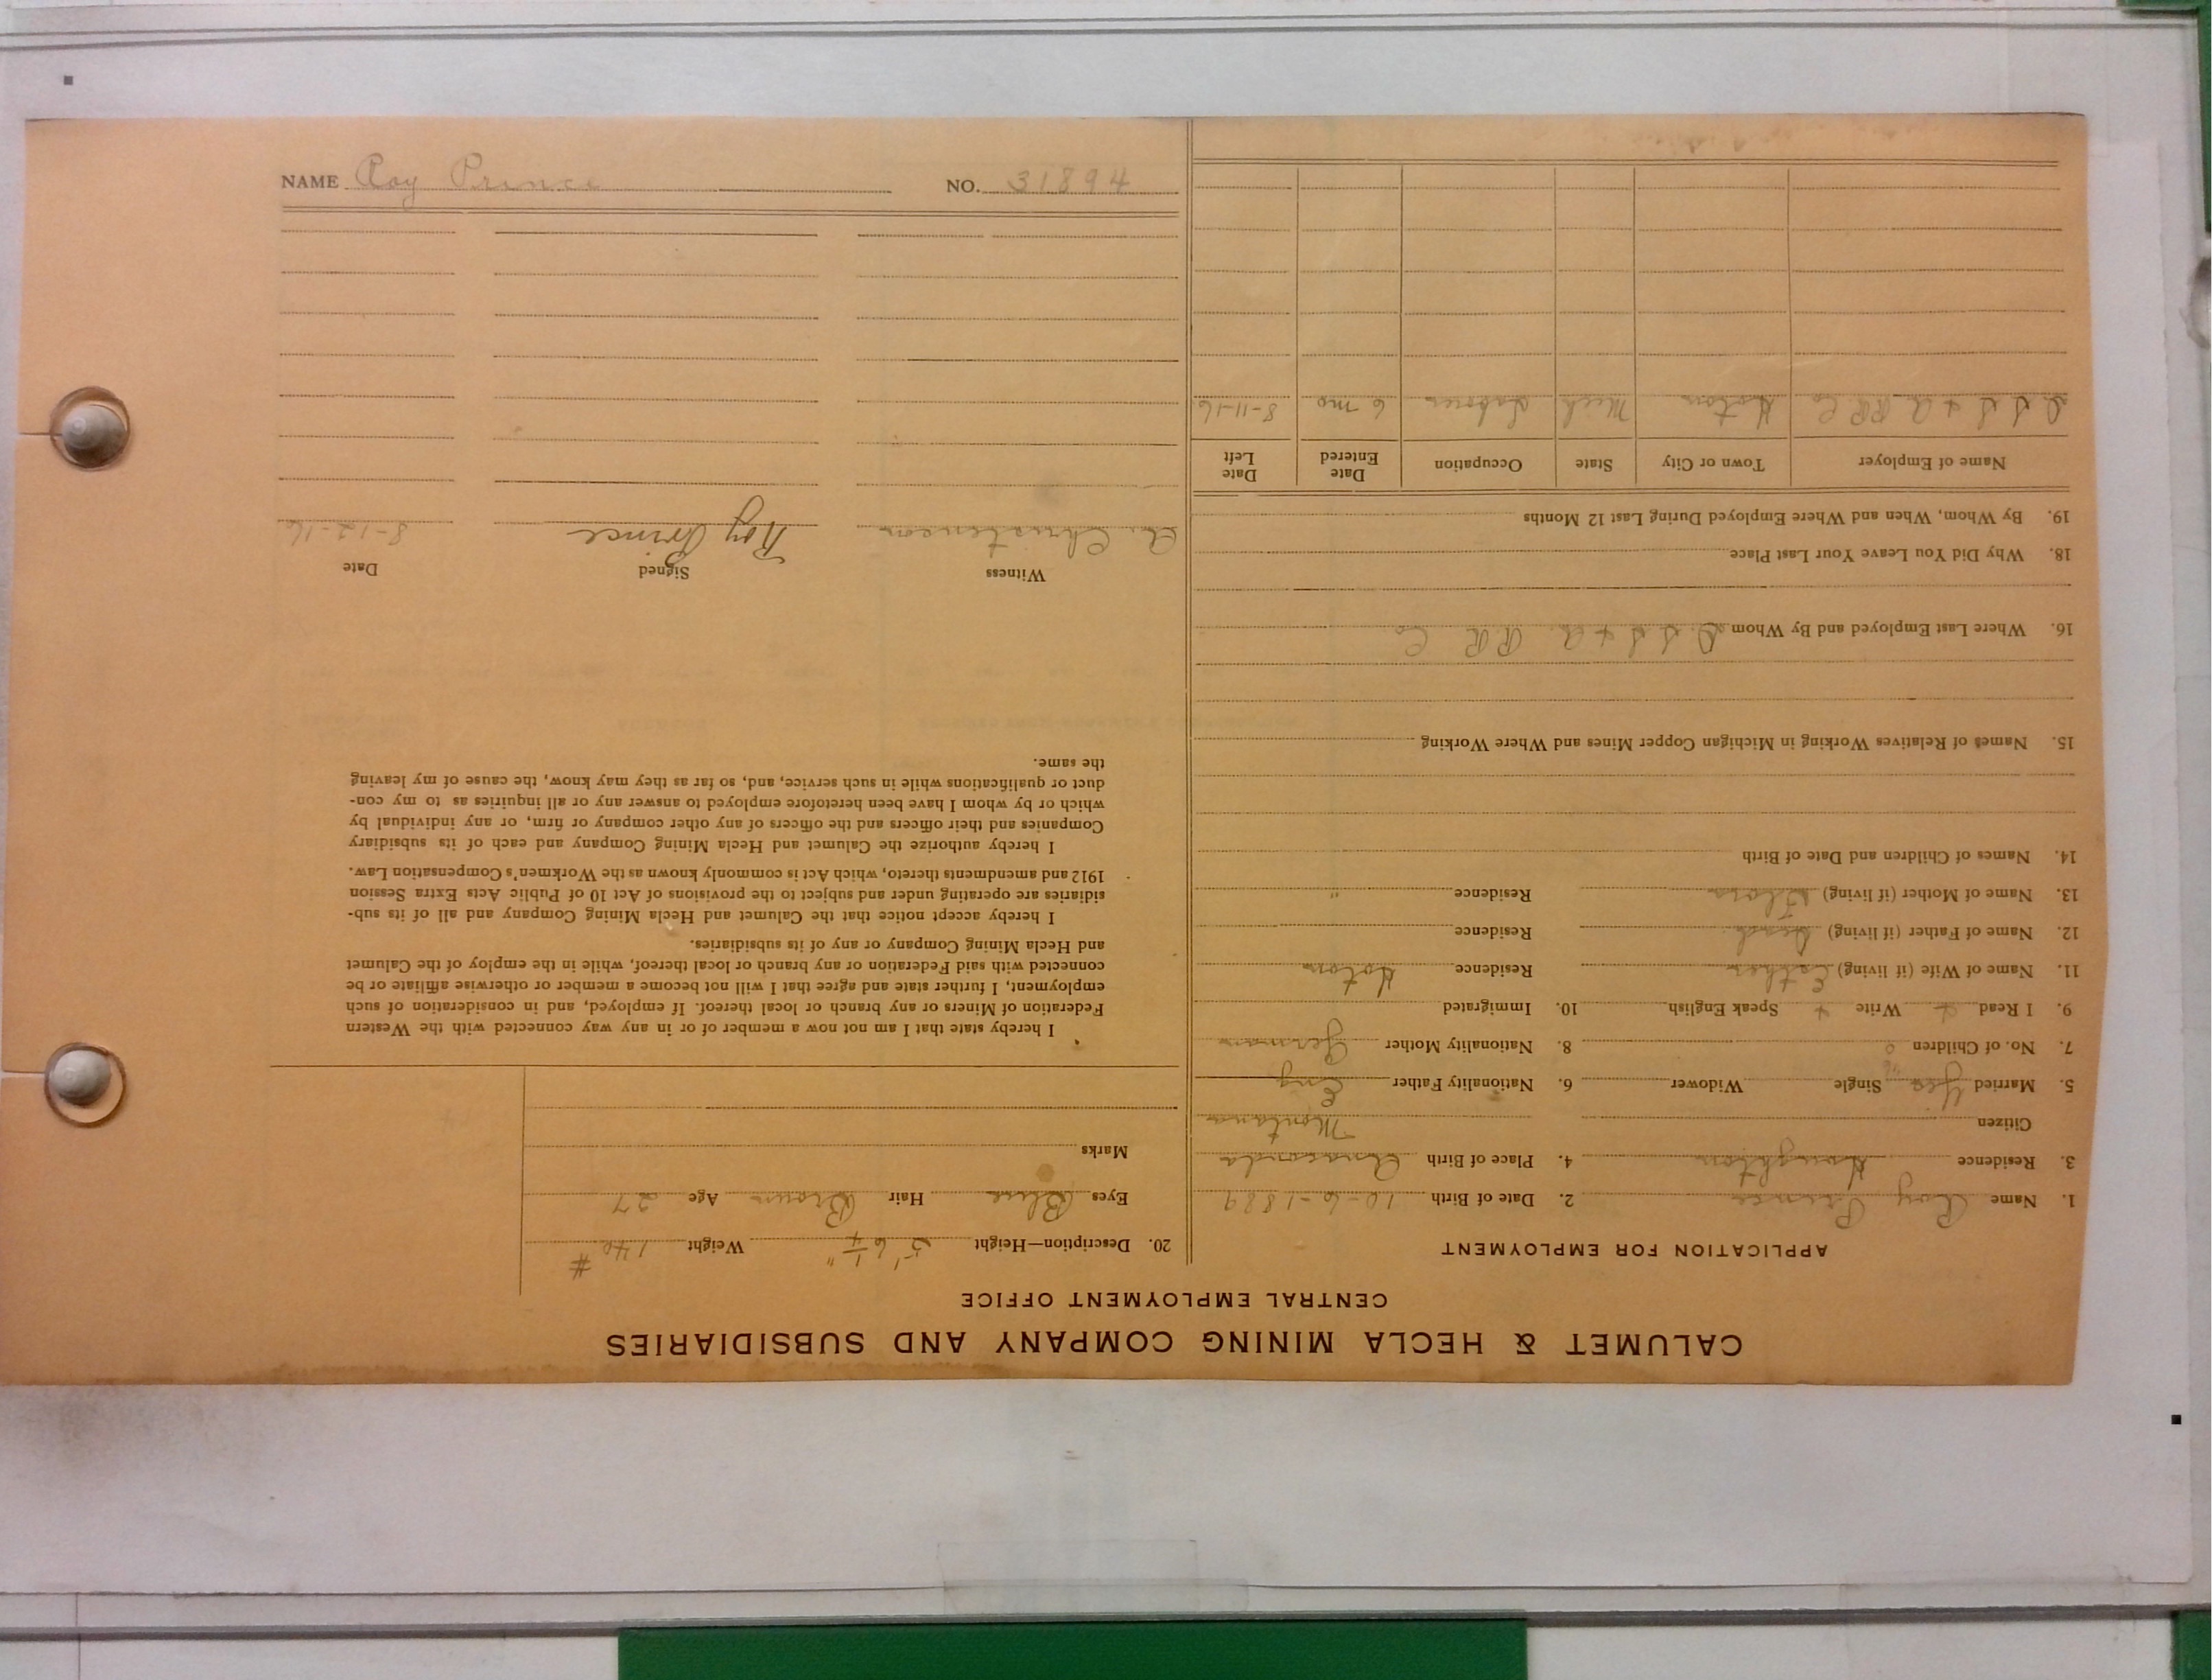 CALUMET & HECLA MINING COMPANY AND SUBSIDIARIES
CENTRAL EMPLOYMENT OFFICE
APPLICATION FOR EMPLOYMENT
1. Name Roy Prince 2. Date of Birth 10-6-1889
3. Residence Houghton 4. Place of Birth Anaconda
Citizen Montana
5. Married Yes Single Widower 6. Nationality Father Eng
7. No. of Children 0 8. Nationality Mother German
9. I Read + Write + Speak English 10. Immigrated
11. Name of Wife (if living) Esther Residence Hoton
12. Name of Father (if living) Dead Residence
13. Name of Mother (if living) Flora Residence "
14. Names of Children and Date of Birth
15. Names of Relatives Working in Michigan Copper Mines and Where Working
16. Where Last Employed and By Whom D. S. S & A. RR Co
18. Why Did You Leave Your Last Place
19. By Whom, When and Where Employed During Last 12 Months
Name of Employer Town or City State Occupation Date Entered Date Left
D. S. S & A RR. Co Hoton Mich Laborer 6 mo 8-11-16
20. Description—Height 5' 6 1/4" Weight 140 #
Eyes Blue Hair Brown Age 27
Marks
I hereby state that I am not now a member of or in any way connected with the Western
Federation of Miners or any branch or local thereof. If employed, and in consideration of such
employment, I further state and agree that I will not become a member or otherwise affiliate or be
connected with said Federation or any branch or local thereof, while in the employ of the Calumet
and Hecla Mining Company or any of its subsidiaries.
I hereby accept notice that the Calumet and Hecla Mining Company and all of its sub-
sidiaries are operating under and subject to the provisions of Act 10 of Public Acts Extra Session
1912 and amendments thereto, which Act is commonly known as the Workmen's Compensation Law.
I hereby authorize the Calumet and Hecla Mining Company and each of its subsidiary
Companies and their officers and the officers of any other company or firm, or any individual by
which or by whom I have been heretofore employed to answer any or all inquiries as to my con-
duct or qualifications while in such service, and, so far as they may know, the cause of my leaving
the same.
Witness Signed Date
A. Christenson Roy Prince 8-12-16
NAME Roy Prince NO. 31894